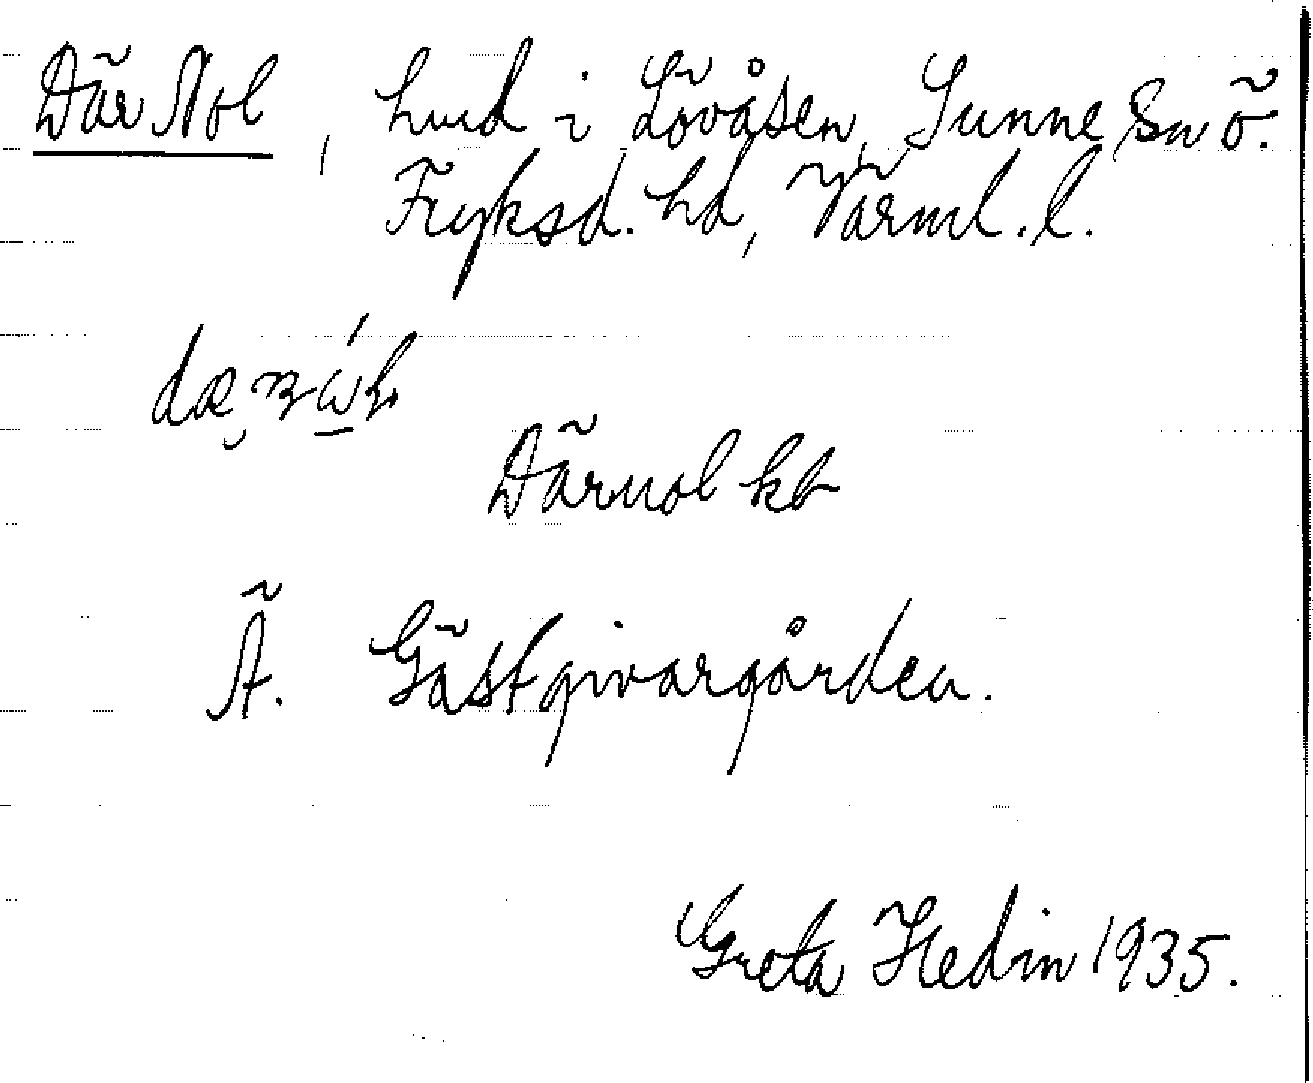 Där Nol, hmd i Lövåsen, Sunne sn Ö.
Fryksd. hd, Värml. l.
Därnol
Ä. Gästgivargården.
Greta Hedin 1935.